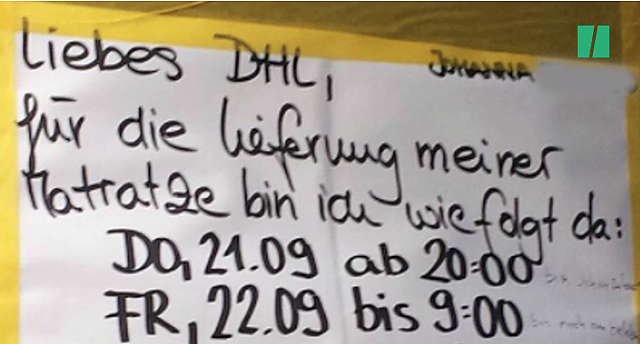 Liebes DHL, JOHANNA
für die Lieferung meiner
Matratze bin ich wie folgt da:
DO, 21.09 ab 20:00
FR, 22.09 bis 9:00